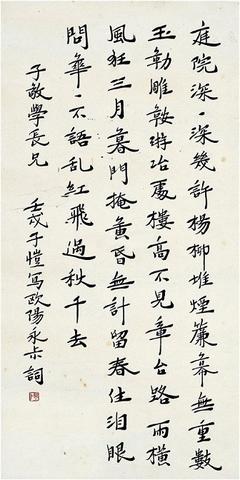 庭院深〻深幾許楊柳堆煙簾幕無重數
玉勒雕鞍游冶處樓高不見章台路雨橫
風狂三月暮門掩黃昏無計留春住淚眼
問華〻不語乱紅飛過秋千去
子敬學長兄
壬戌子愷寫歐陽永叔詞